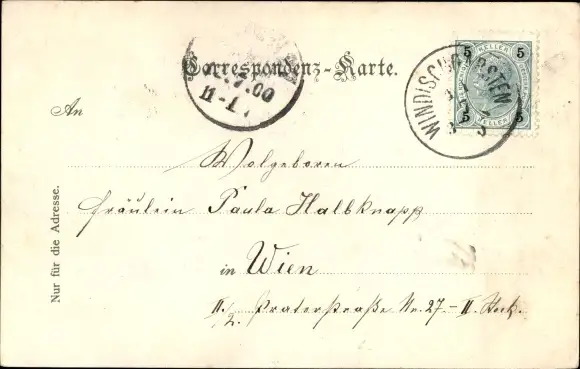 Correspondenz-Karte.
5 HELLER 5
WINDISCHGARSTEN
5 HELLER 5
7.00
11-1
An
Wolgeboren
Fräulein Paula Halbknapp
in Wien
II./2. Praterstraße No. 27 - II. Stock.
Nur für die Adresse.